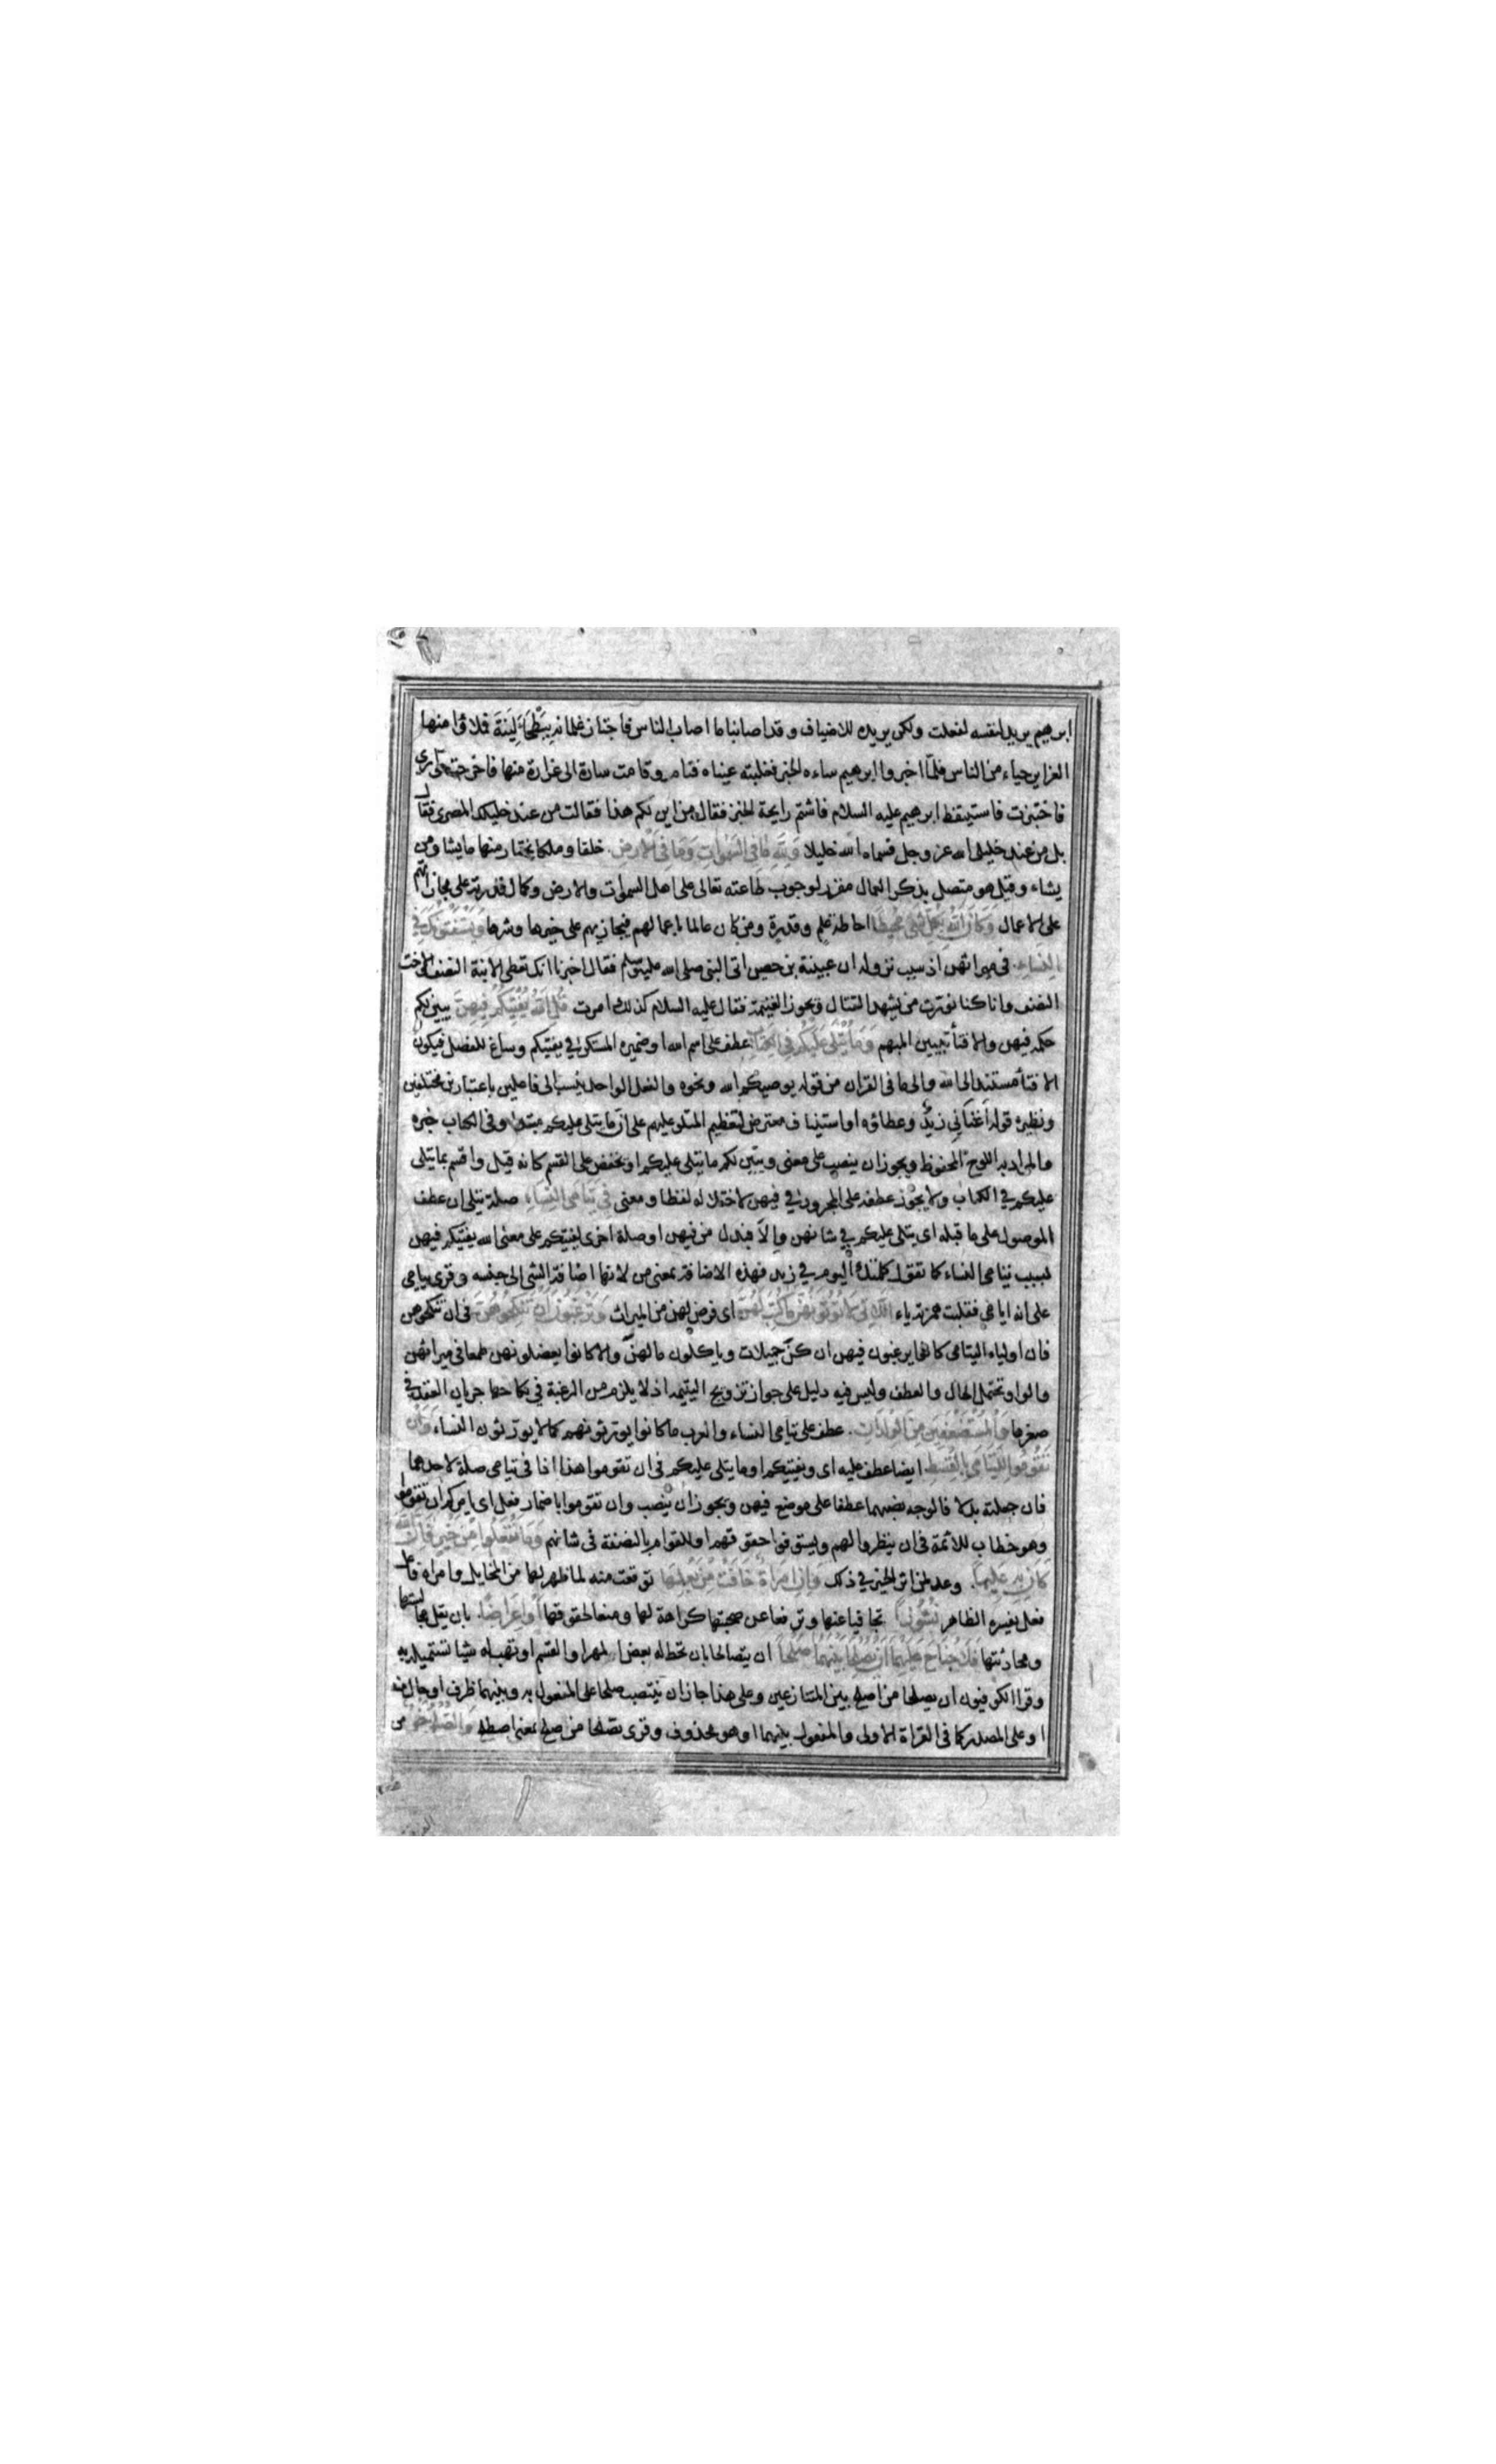 ابرهيم يريد لنفسه لفعلت ولكن يريده للاضياف وقد اصابنا ما اصاب الناس فاجتاز غلمانه ببطحاء لينة فملاؤا منها
الغراير حياء من الناس فلما اخبروا ابرهيم ساءه الخبر فغلبته عيناه فنام وقامت سارة الى غرارة منها فاخرجت حوارى
فاختبزت فاستيقظ ابرهيم عليه السلام فاشتم رايحة الخبز فقال من اين لكم هذا فقالت من عند خليلك المصرى فقال
بل من عند خليلى الله عز وجل فسماه الله خليلا وَلِلَّهِ مَا فِى السَّمٰوَاتِ وَمَا فِى الْاَرْضِ خلقا وملكا يختار منها ما يشا ومن
يشاء وقيل هو متصل بذكر العمال مقرر لوجوب طاعته تعالى على اهل السموات والارض وكمال قدرته على مجازاتهم
على الاعمال وَكَانَ اللّٰهُ بِكُلِّ شَىْءٍ مُحِيطًا احاطة علم وقدرة ومن كان عالما باعمالهم فيجازيهم على خيرها وشرها وَيَسْتَفْتُونَكَ فِى
النِّسَاءِ فى ميراثهن اذ سبب نزوله ان عيينة بن حصين اتى النبى صلى الله عليه وسلم فقال اخبرنا انك تعطى الابنة النصف والاخت
النصف وانا كنا نورث من يشهد القتال ويحوز الغنيمة فقال عليه السلام كذلك امرت قُلِ اللّٰهُ يُفْتِيكُمْ فِيهِنَّ يبين لكم
حكمه فيهن والافتاء تبيين المبهم وَمَا يُتْلٰى عَلَيْكُمْ فِى الْكِتَابِ عطف على اسم الله او ضميره المستكن فى يفتيكم وساغ للفصل فيكون
الافتاء مستندا الى الله والى ما فى القران من قوله يوصيكم الله ونحوه والفعل الواحد ينسب الى فاعلين باعتبارين مختلفين
ونظيره قوله اَغنَانِى زيدٌ وعطاؤه او استيناف معترض لتعظيم المتلو عليهم على ان ما يتلى عليكم مبتدا وفى الكتاب خبره
والمراد به اللوح المحفوظ ويجوز ان ينصب على معنى ويبين لكم ما يتلى عليكم او يخفض على القسم كانه قيل واقسم بما يتلى
عليكم فى الكتاب ولا يجوز عطفه على المجرور فى فيهن لاختلاله لفظا ومعنى فِى يَتَامَى النِّسَاءِ صلة يتلى ان عطف
الموصول على ما قبله اى يتلى عليكم فى شانهن والا فبدل من فيهن او صلة اخرى ليفتيكم على معنى الله يفتيكم فيهن
بسبب يتامى النساء كما تقول كلمتك اليوم فى زيد فهذه الاضافة بمعنى من لانها اضافة الشى الى جنسه وقرى ييامى
على انه ايامى فقلبت همزته ياء اللَّاتِى لَا تُؤْتُونَهُنَّ مَا كُتِبَ لَهُنَّ اى فرض لهن من الميراث وَتَرْغَبُونَ اَنْ تَنْكِحُوهُنَّ فى ان تنكحوهن
فان اولياء اليتامى كانوا يرغبون فيهن ان كن جميلات وياكلون مالهن والا كانوا يعضلونهن طمعا فى ميراثهن
والواو تحتمل الحال والعطف وليس فيه دليل على جواز تزويج اليتيمه اذ لا يلزم من الرغبة فى نكاحها جريان العقد فى
صغرها وَالْمُسْتَضْعَفِينَ مِنَ الْوِلْدَانِ عطف على يتامى النساء والعرب ما كانوا يورثونهم كما لا يورثون النساء وَاَنْ
تَقُومُوا لِلْيَتَامٰى بِالْقِسْطِ ايضا عطف عليه اى ويفتيكم او ما يتلى عليكم فى ان تقوموا هذا اذا فى يتامى صلة لاحدهما
فان جعلته بدلا فالوجه نصبهما عطفا على موضع فيهن ويجوز ان ينصب وان تقوموا باضمار فعل اى يامركم ان تقوموا
وهو خطاب للائمة فى ان ينظروا لهم ويستوفوا حقوقهم او للقوام بالنصفة فى شانهم وَمَا تَفْعَلُوا مِنْ خَيْرٍ فَاِنَّ اللّٰهَ
كَانَ بِهِ عَلِيمًا وعد لمن اثر الخير فى ذلك وَاِنِ امْرَاَةٌ خَافَتْ مِنْ بَعْلِهَا توقعت منه لما ظهر لها من المخايل وامراه فاعل
فعل يفسره الظاهر نُشُوزًا تجافيا عنها وترفعا عن صحبتها كراهة لها ومنعا لحقوقها اَوْ اِعْرَاضًا بان يقل مجالستها
ومحادثتها فَلَا جُنَاحَ عَلَيْهِمَا اَنْ يُصْلِحَا بَيْنَهُمَا صُلْحًا ان يتصالحا بان تحط له بعض المهر او القسم او تهب له شيا تستميله به
وقرا الكوفيون ان يصلحا من اصلح بين المتنازعين وعلى هذا جاز ان ينتصب صلحا على المفعول به وبينهما ظرف او حال منه
او على المصدر كما فى القراة الاولى والمفعول بينهما او هو محذوف وقرى يصلحا من صلح بمعنى اصطلح وَالصُّلْحُ خَيْرٌ من